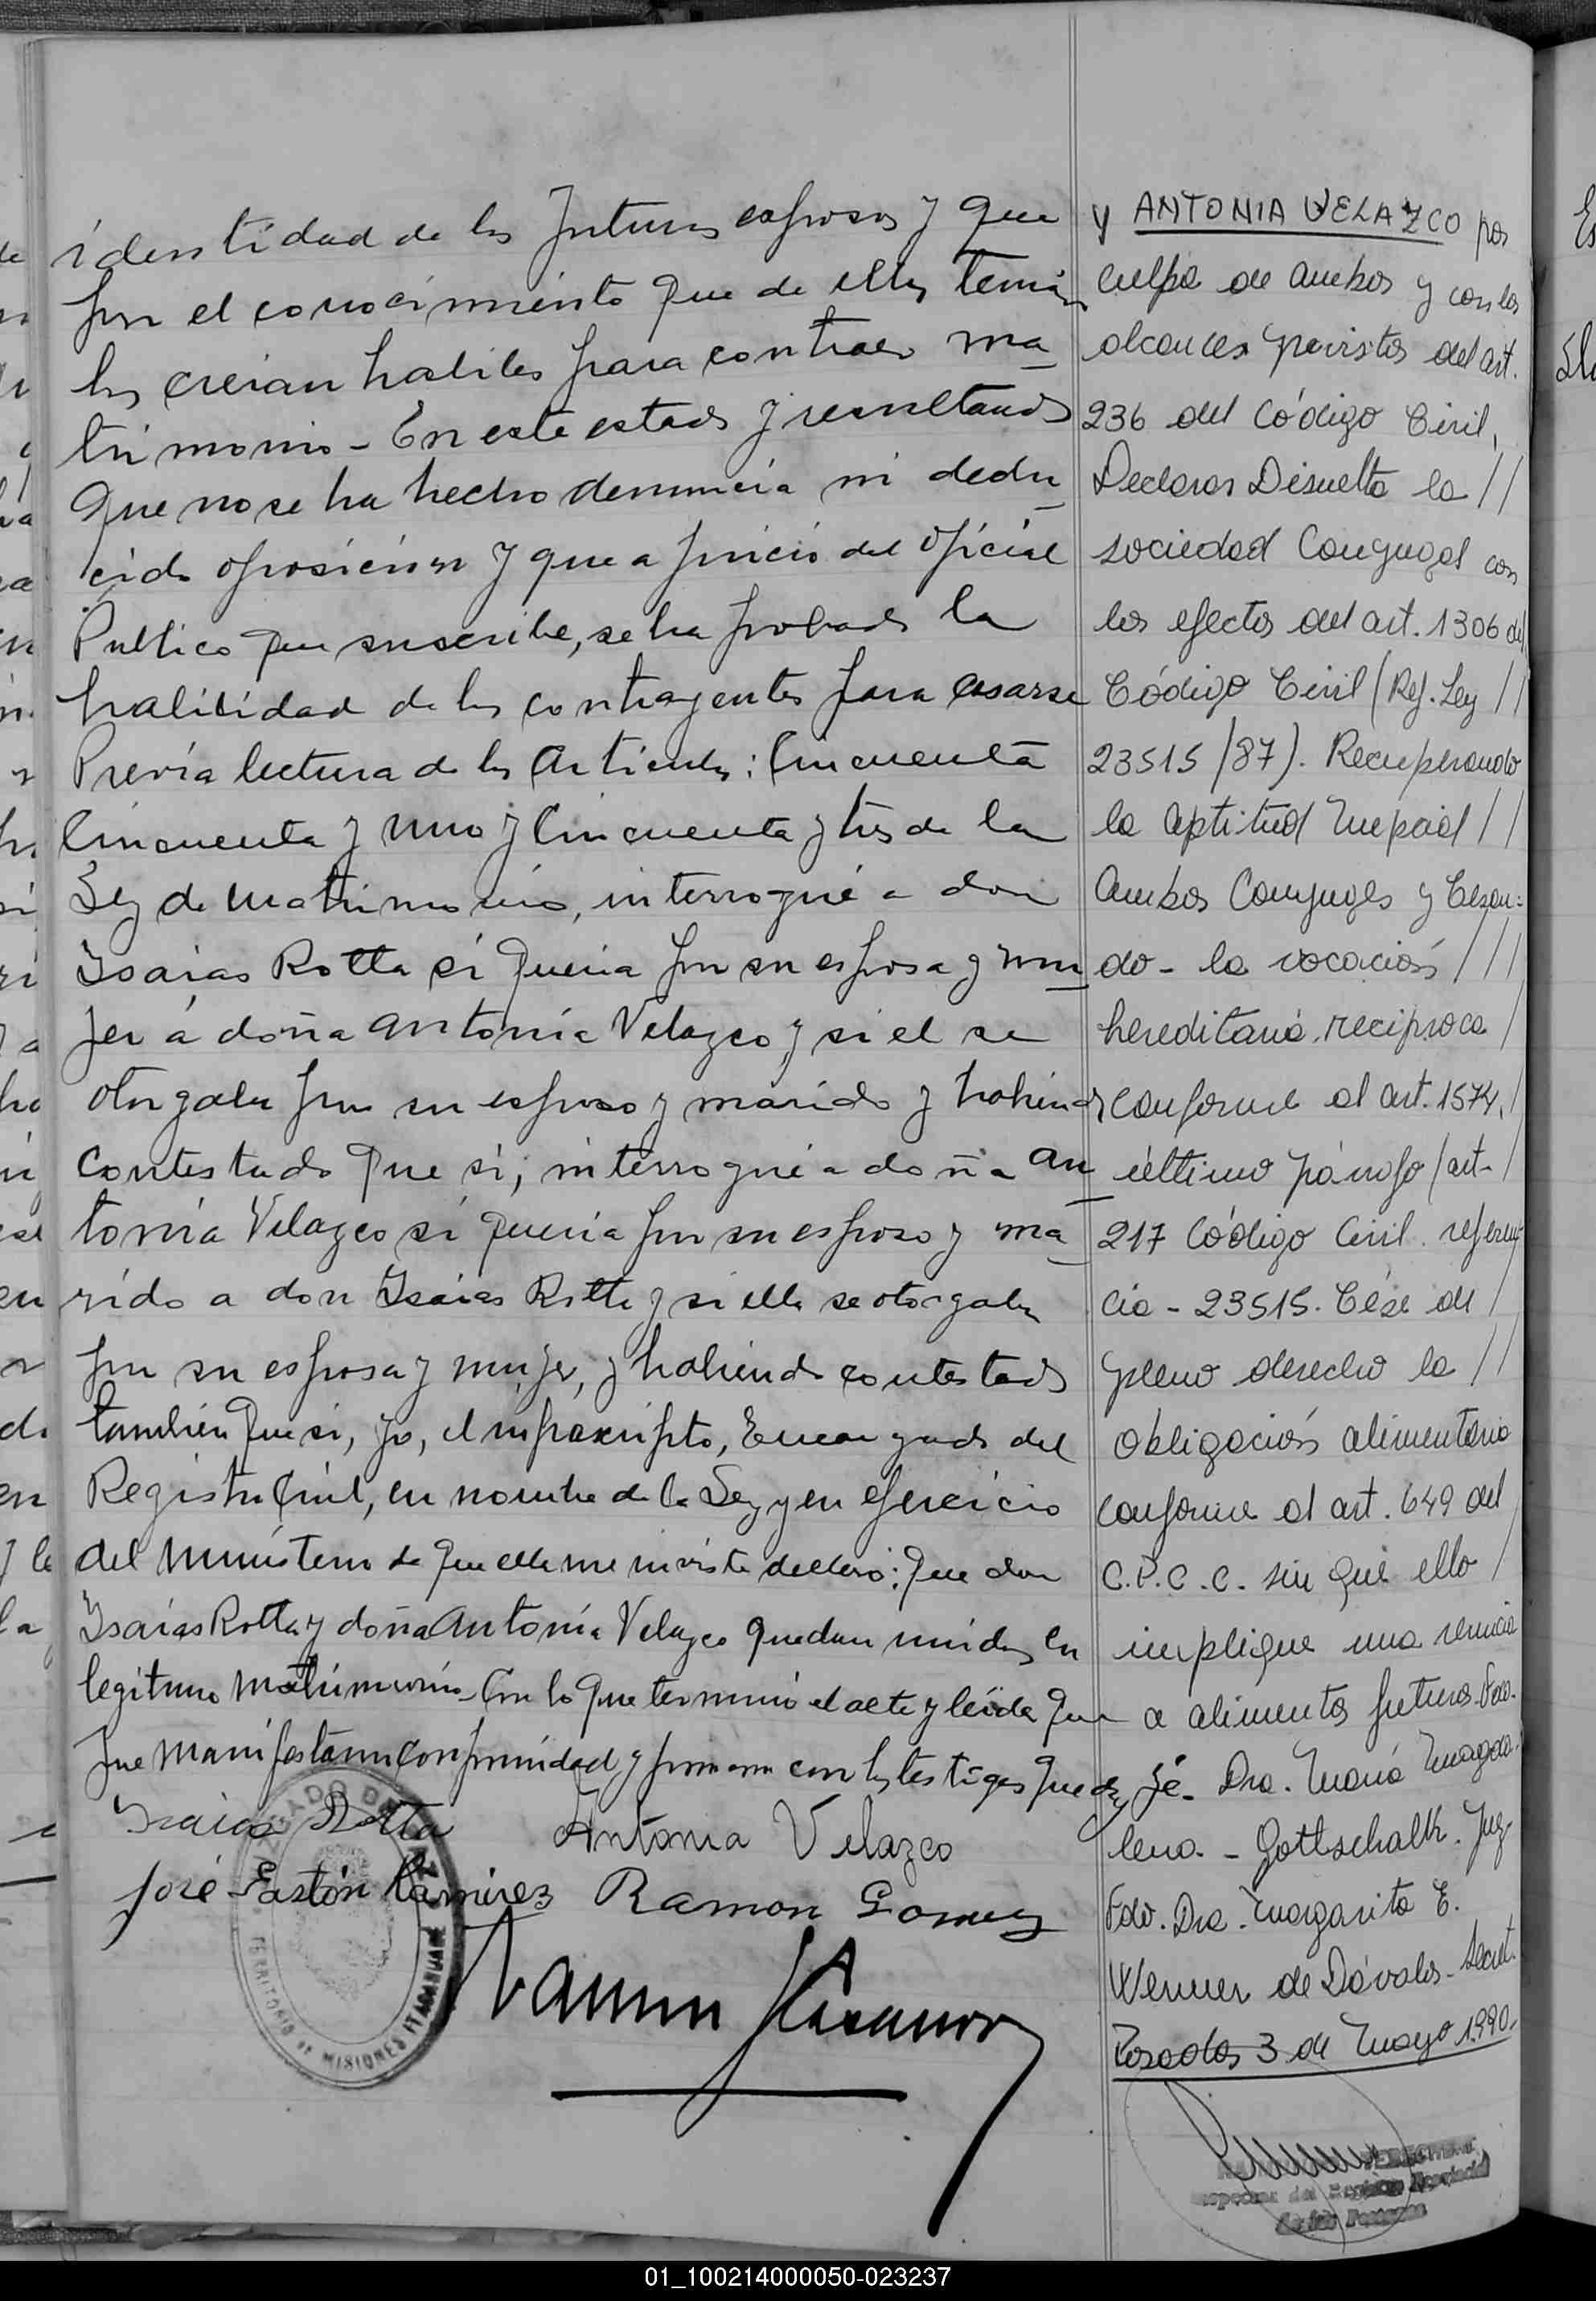 identidad de los futuros esposos y que
por el conocimiento que de ellos tenian
los creian habiles para contraer ma
trimonio - En este estado y resultando
que no se ha hecho denuncia ni dedu
cido oposición y que a juicio del Oficial
Publico que suscribe, se ha probado la
habilidad de los contrayentes para casarse
Previa lectura de los Articulos: Cincuenta
Cincuenta y uno y Cincuenta y tres de la
Ley de Matrimonio, interrogué a don
Isaias Rotta si queria por su esposa y mu
jer á doña Antonia Velazco y si el se
otorgaba por su esposo y marido y habiendo
contestado que si, interrogué a doña An
tonia Velazco si queria por su esposo y ma
rido a don Isaias Rotta y si ella se otorgaba
por su esposa y mujer, y habiendo contestado
tambien que si, yo, el infrascripto, Encargado del
Registro Civil, en nombre de la Ley y en ejercicio
del ministerio de que ella me inviste declaro: que don
Isaias Rotta y doña Antonia Velazco quedan unidos en
legitimo matrimonio - Con lo que terminó el acto y leida que
fue manifestaron conformidad y firmaron con los testigos que doy
Isaias Rotta
Antonia Velazco
José Gastón Ramirez
Ramon Gomez
TERRITORIO DE MISIONES ITACARUARE
y ANTONIA VELAZCO por
culpa de ambos y con los
alcances previstos del art.
236 del Código Civil,
Declarar Disuelta la //
sociedad Conyugal con
los efectos del art. 1306 del
Código Civil (Ref. Ley //
23515/87). Recuperando
la aptitud nupcial //
Ambos Conyuges y Cesan=
do - la vocación ///
hereditaria reciproca /
conforme al art. 1574, /
último párrafo (art- /
217 Código Civil. referen-
cia - 23515. Cése de /
pleno derecho la //
obligación alimentaria
conforme al art. 649 del
C.P.C.C. sin que ello /
implique una renuncia
a alimentos futuros. Fdo.
fé. Dra. María Magda-
lena. - Gottschalk. Juez-
Fdo. Dra. Margarita E.
Werner de Dávalos. Secret.
Posadas 3 de Mayo 1990.
01_100214000050-023237